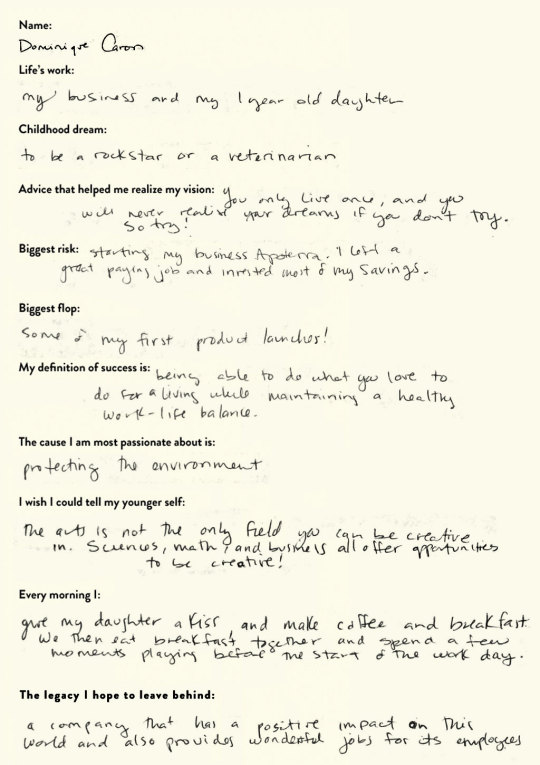 Name:
Dominique Caron
Life's work:
my business and my 1 year old daughter
Childhood dream:
to be a rockstar or a veterinarian
Advice that helped me realize my vision: you only live once, and you
will never realize your dreams if you don't try.
So try!
Biggest risk: starting my business Apoterra. I left a
great paying job and invested most of my savings.
Biggest flop:
Some of my first product launches!
My definition of success is: being able to do what you love to
do for a living while maintaining a healthy
work-life balance.
The cause I am most passionate about is:
protecting the environment
I wish I could tell my younger self:
The arts is not the only field you can be creative
in. Sciences, math, and business all offer opportunities
to be creative!
Every morning I:
give my daughter a kiss and make coffee and breakfast
We then eat breakfast together and spend a few
moments playing before the start of the work day.
The legacy I hope to leave behind:
a company that has a positive impact on this
world and also provides wonderful jobs for its employees